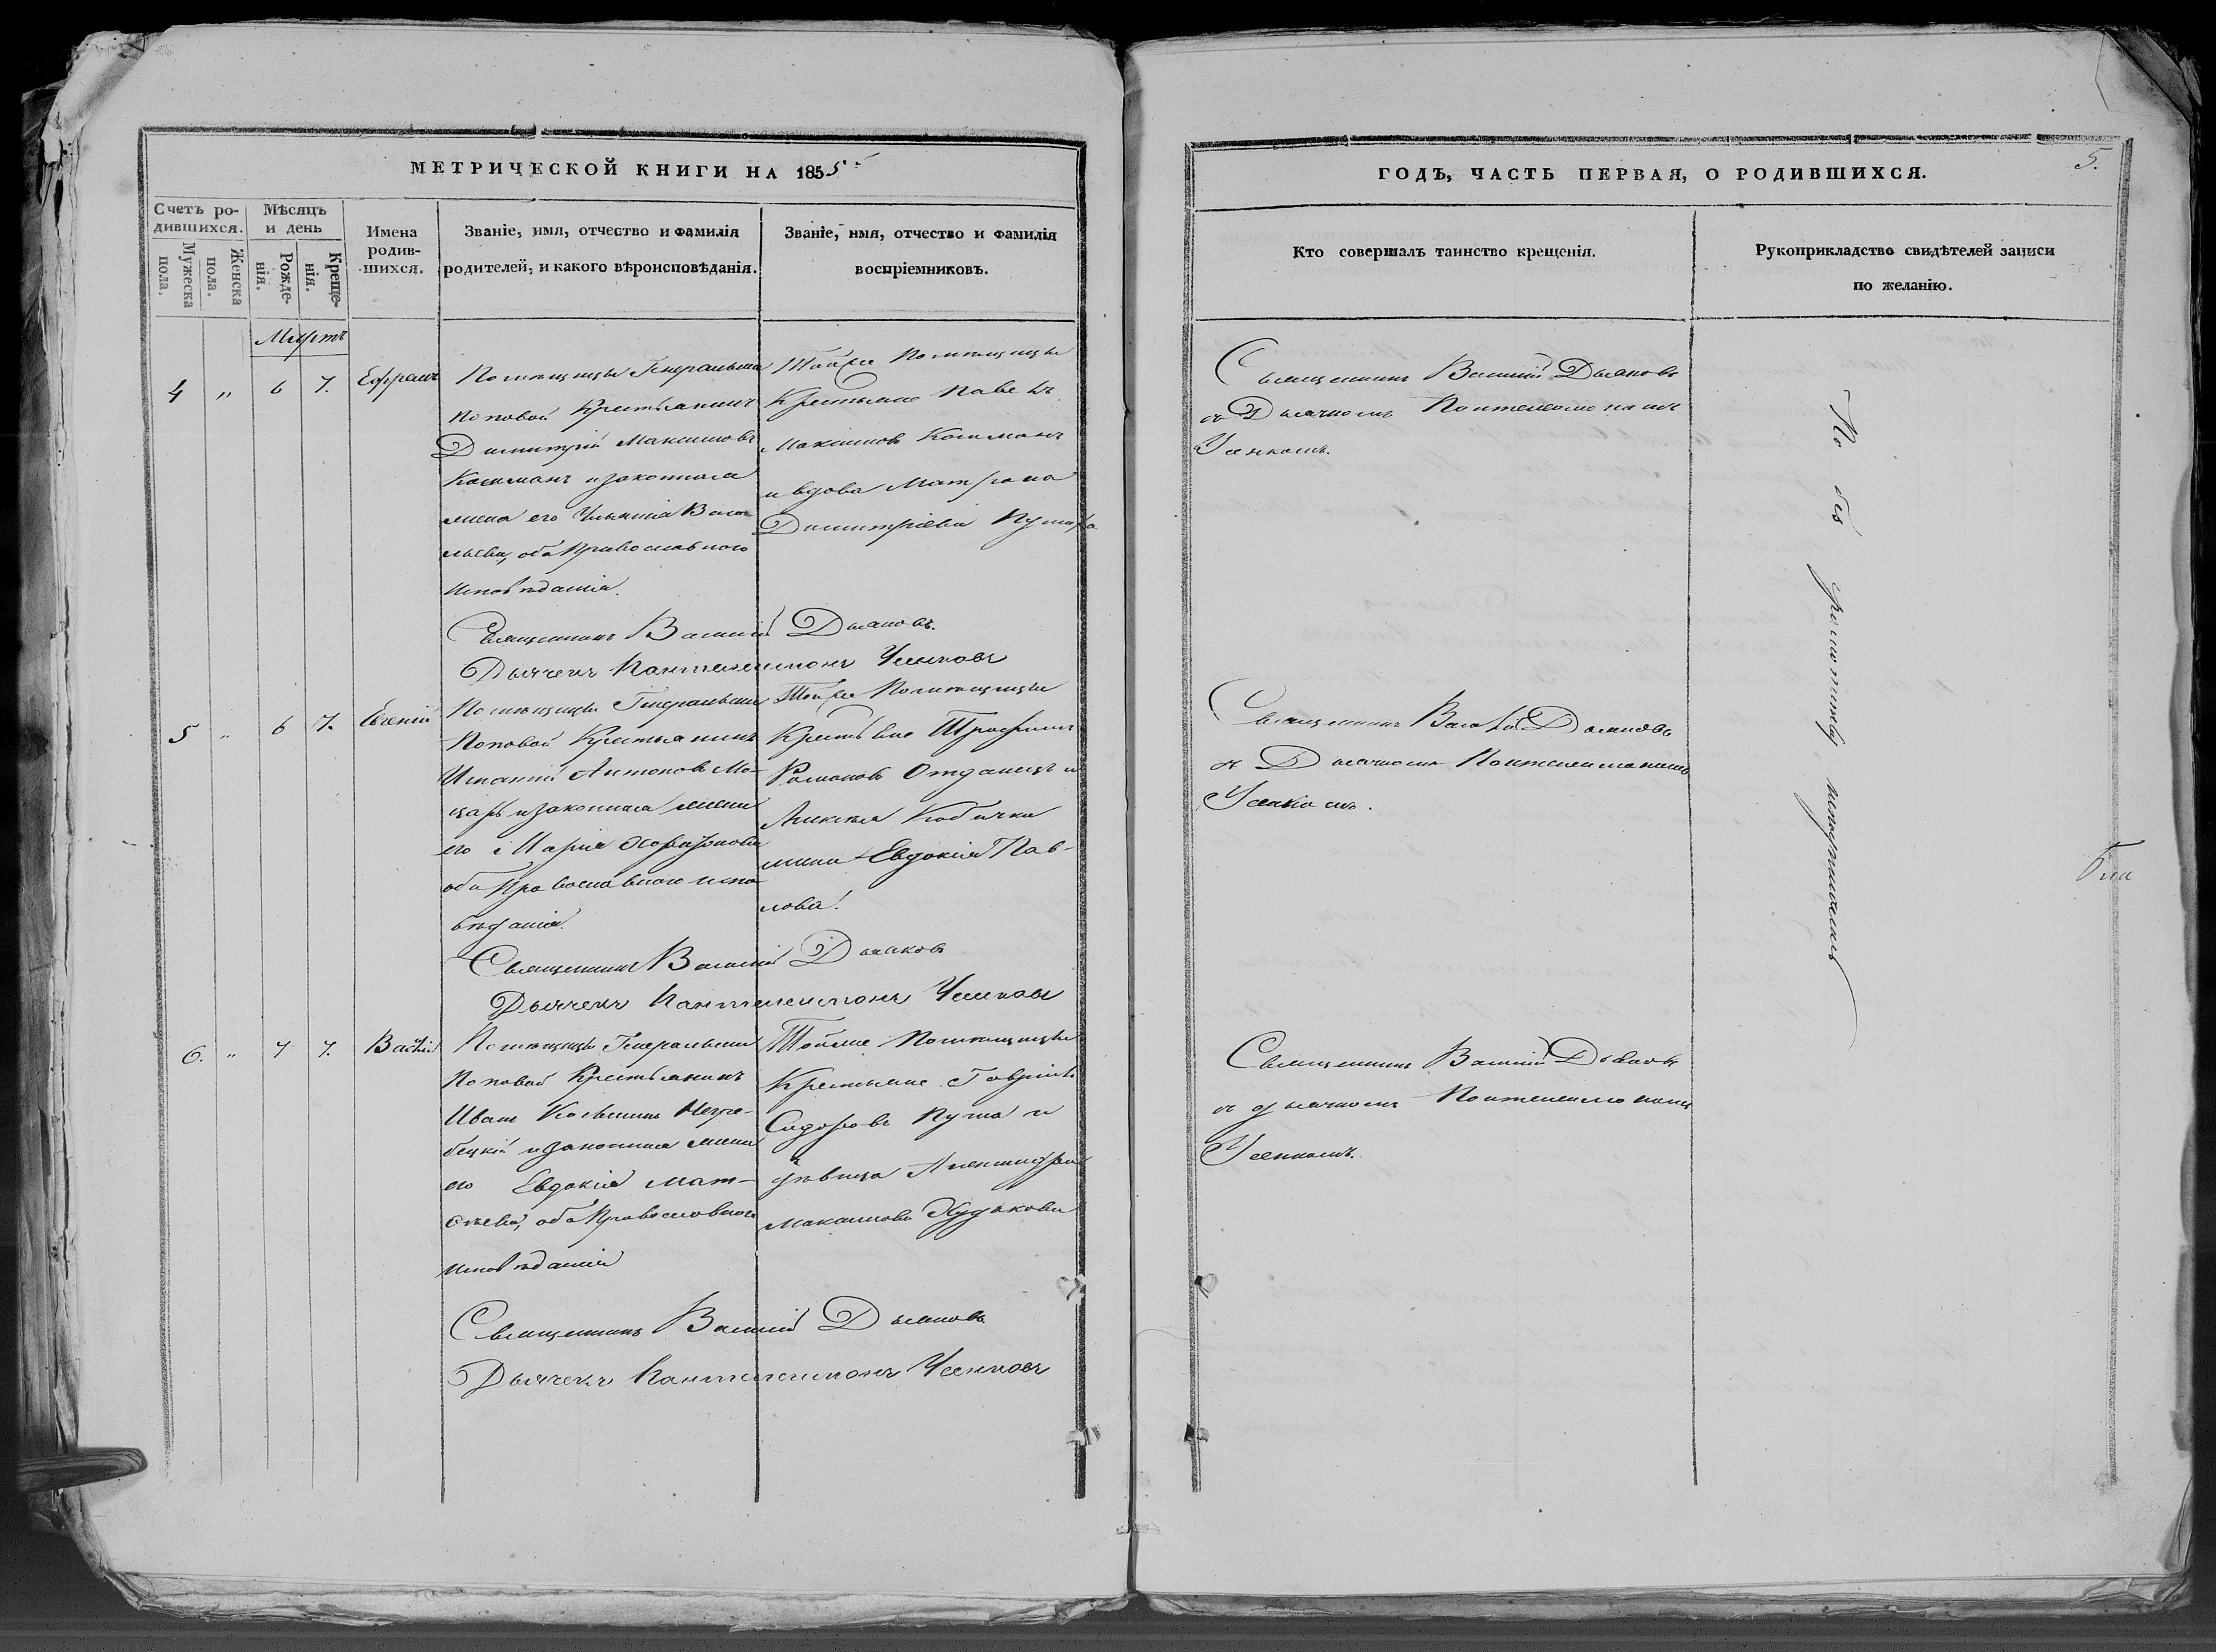 МЕТРИЧЕСКОЙ КНИГИ НА 1855
Счетъ ро-
дившихся.
Мужеска
пола.
Женска
пола.
Мѣсяцъ
и день
Рожде-
нія.
Креще-
нія.
Имена
родив-
шихся.
Званіе, имя, отчество и фамилія
родителей, и какого вѣроисповѣданія.
Званіе, имя, отчество и фамилія
воспріемниковъ.
Мартъ
4 " 6 7. Ефремъ
Помѣщицы Генеральши
Поповой Крестьянинъ
Димитрій Максимовъ
Кошманъ и законная
жена его
оба Православнаго
исповѣданія.
Тойже Помѣщицы
Крестьяне Павелъ
Максимовъ Кошманъ
и вдова Матрона
Димитріева
Священникъ Василій Дьяковъ.
Дьячекъ Пантелеимонъ Усенковъ
5 " 6 7. Евгеній
Помѣщицы Генеральши
Поповой Крестьянинъ
Игнатій Антоновъ
и законная жена
его Марія
оба Православнаго испо-
вѣданія.
Тойже Помѣщицы
Крестьяне Трофимъ
Романовъ и
жена Евдокія Пав-
лова.
Священникъ Василій Дьяковъ
Дьячекъ Пантелеимонъ Усенковъ
6. " 7 7. Василій
Помѣщицы Генеральши
Поповой Крестьянинъ
Иванъ Козьминъ Негре-
бецкій и законная жена
его Евдокія Мат-
ѳеева, оба Православнаго
исповѣданія
Тойже Помѣщицы
Крестьяне Гавріилъ
Сидоровъ и
дѣвица Александра
Максимова Худякова
Священникъ Василій Дьяковъ
Дьячекъ Пантелеимонъ Усенковъ
ГОДЪ, ЧАСТЬ ПЕРВАЯ, О РОДИВШИХСЯ.
5.
Кто совершалъ таинство крещенія.
Рукоприкладство свидѣтелей записи
по желанію.
Священникъ Василій Дьяковъ
съ Дьячкомъ Пантелеимономъ
Усенкомъ.
Священникъ Василій Дьяковъ
съ Дьячкомъ Пантелеимономъ
Усенкомъ.
Священникъ Василій Дьяковъ
съ дьячкомъ Пантелеимономъ
Усенкомъ.
По безграмотству неподписались